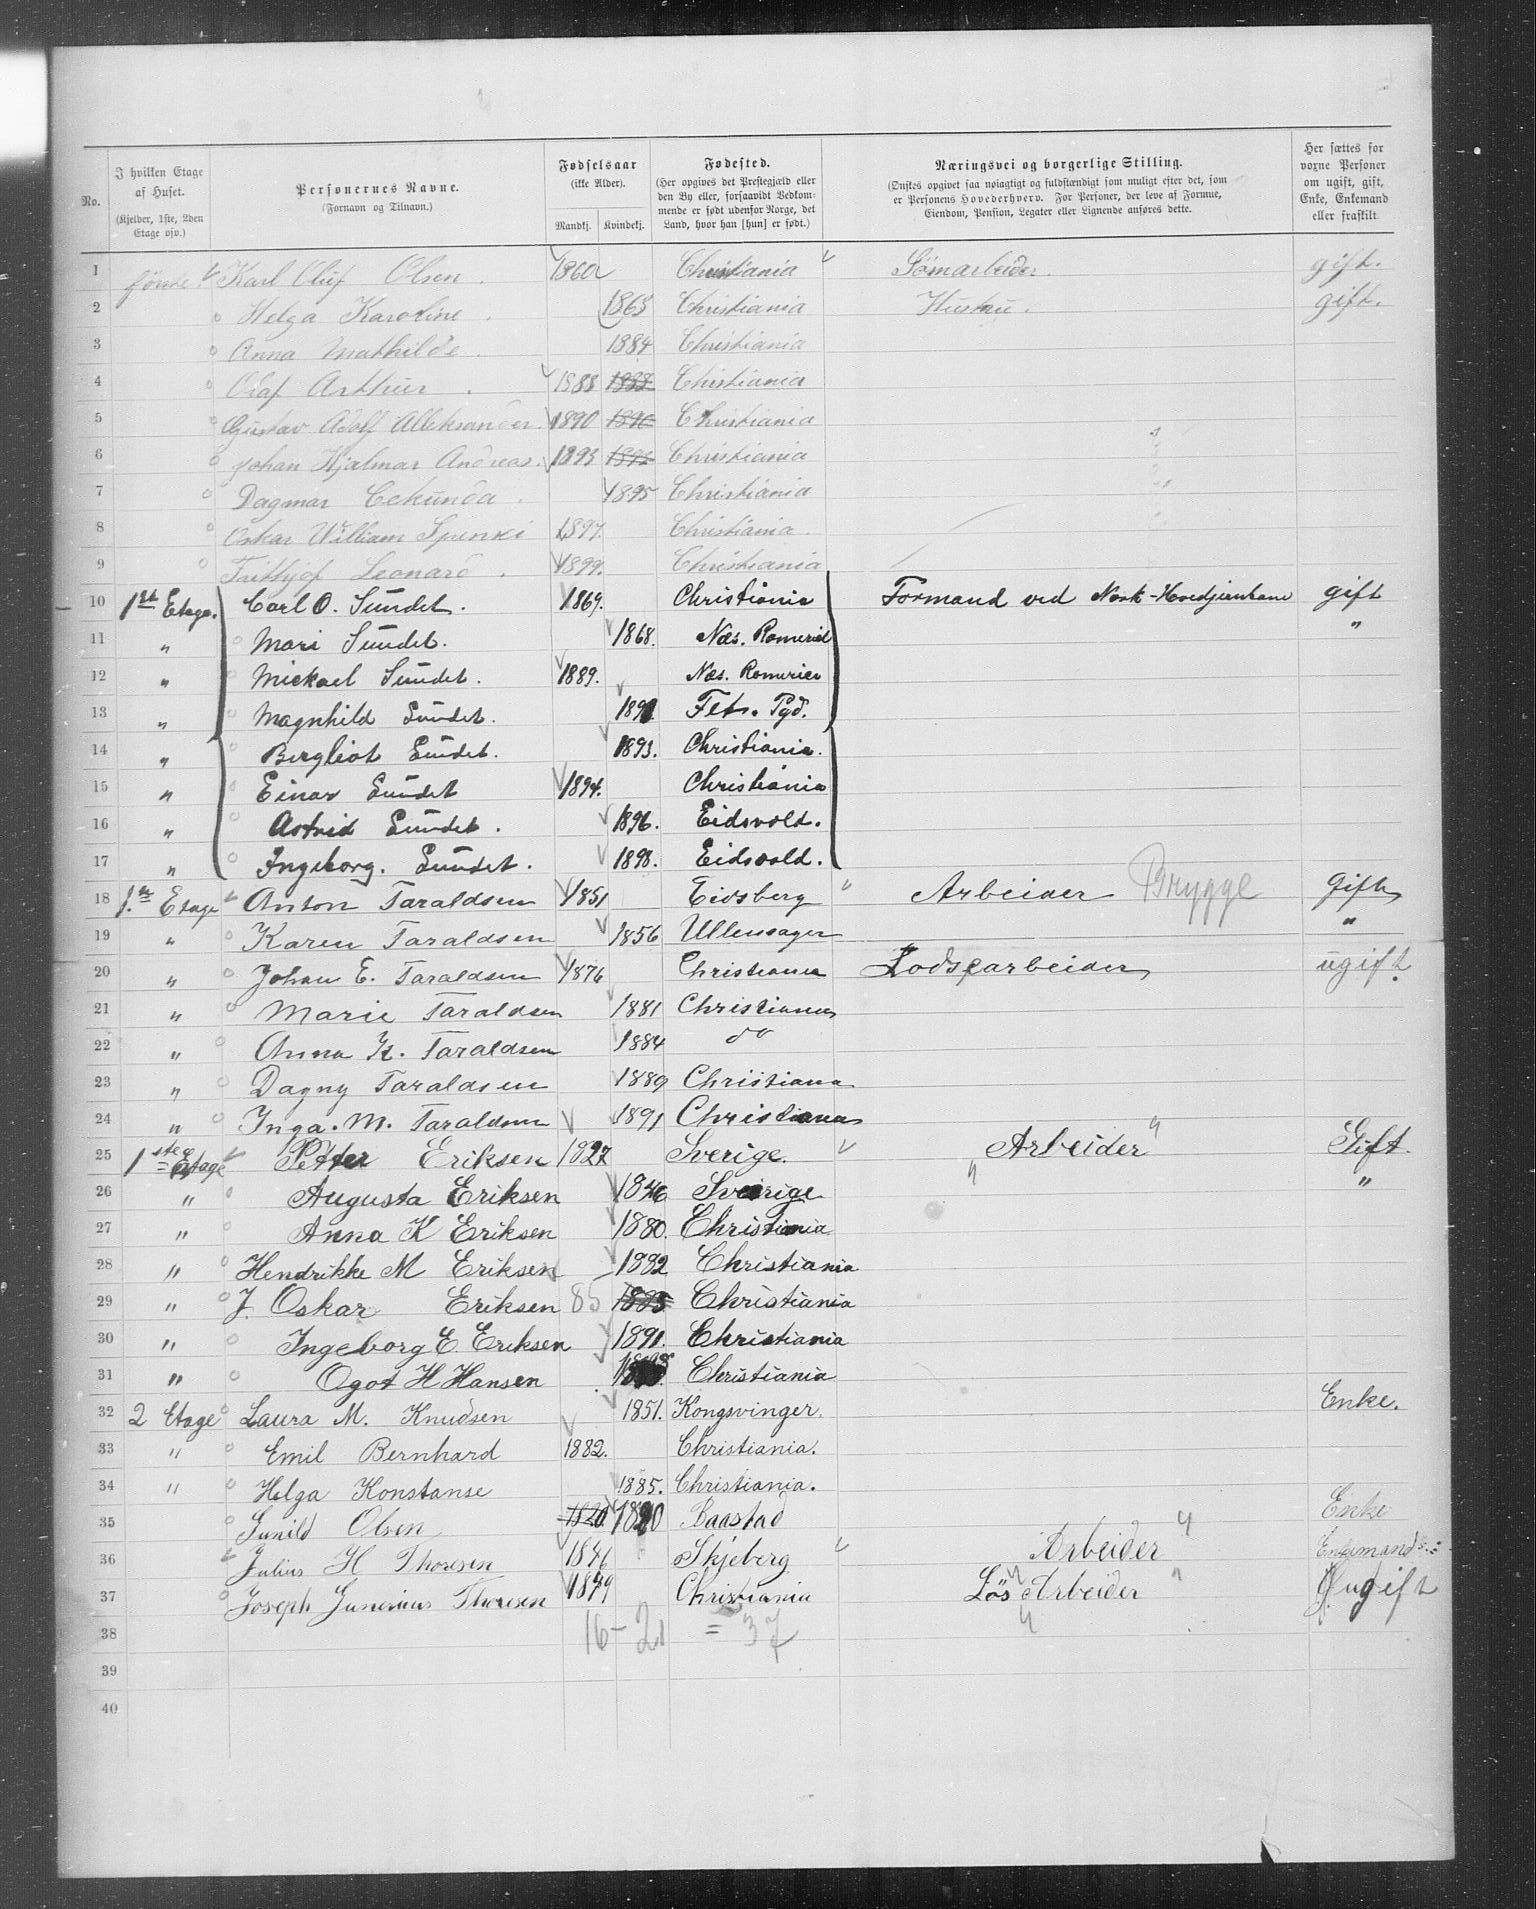 No. | I hvilken Etage af Huset. (Kjelder, 1ste, 2den Etage osv.) | Personernes Navne. (Fornavn og Tilnavn.) | Fødselsaar (ikke Alder). Mandkj. Kvindekj. | Fødested. (Her opgives det Prestegjæld eller den By eller, forsaavidt Vedkommende er født udenfor Norge, det Land, hvor han [hun] er født.) | Næringsvei og borgerlige Stilling. (Ønskes opgivet saa nøiagtigt og fuldstændigt som muligt efter det, som er Personens Hovederhverv. For Personer, der leve af Formue, Eiendom, Pension, Legater eller Lignende anføres dette. | Her sættes for voxne Personer om ugift, gift, Enke, Enkemand eller fraskilt
1 Karl Oluf Olsen. 1860 Christiania Sömarbeider. gift.
2 Helga Karoline. 1863 Christiania Hustru. gift.
3 Anna Mathilde. 1884 Christiania
4 Olaf Arthur. 1888 1888 Christiania
5 Gustav Adolf Alleksander. 1890 1890 Christiania
6 Johan Hjalmar Andreas. 1893 1893 Christiania
7 Dagmar 1895 Christiania
8 Oskar William 1897. Christiania.
9 Frithjof Leonard. 1899. Christiania
10 1st Etage. Carl O. Sundet. 1869. Christiania Formand ved Norsk-Hovedjernbane gift
11 " Mari Sundet. 1868. Næs. Romerike "
12 " Mickael Sundet. 1889. Næs. Romerike
13 " Magnhild Sundet. 1891. Fet. Pgd.
14 " Bergliot Sundet. 1893. Christiania.
15 " Einar Sundet 1894. Christiania
16 " Astrid Sundet. 1896. Eidsvold.
17 " Ingeborg. Sundet. 1898. Eidsvold.
18 1.ste Etage Anton Taraldsen 1851 Eidsberg Arbeider Brygge Gift
19 " Karen Taraldsen 1856 Ullensager "
20 " Johan E. Taraldsen 1876 Christiania Lodsearbeider ugift.
21 " Marie Taraldsen 1881 Christiania
22 " Anna K. Taraldsen 1884 do
23 " Dagny Taraldsen 1889 Christiana
24 " Inga. M. Taraldsen 1891 Christiana
25 1ste Etage Petter Eriksen 1827 Sverige. Arbeider Gift.
26 " Augusta Eriksen 1846 Sverige "
27 " Anna K Eriksen 1880. Christiania
28 " Hendrikke M Eriksen 1882 Christiania
29 " J. Oskar Eriksen 85 1885 Christiania
30 " Ingeborg E Eriksen 1891. Christiania
31 " Ogot H Hansen Christiania
32 2 Etage Laura M. Knudsen 1851. Kongsvinger. Enke.
33 " Emil Bernhard 1882. Christiania.
34 " Helga Konstanse 1885. Christiania.
35 Gunild Olsen 1820 1820 Baastad Enke
36 Julius H Thoresen 1846 Skjeberg Arbeider Enkemand
37 Joseph Thoresen 1879 Christiania Løs Arbeider ugift
38 16 - 21 = 37
39
40